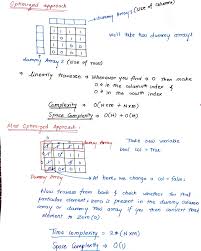 Optimized Approach
Dummy Array 1 (Use of column)
Will take two dummy arrays
Dummy Array 2 (Use of row)
→ linearly traverse → whenever you find a 0 then make
0 in the column index &
0 in the row index
Complexity → O(N×M + N×M)
Space Complexity → O(N) + O(M)
Most Optimized Approach:
Dummy Array
Take new variable
col = True
Dummy Array
→ At here, we change a col = false;
Now traverse from back & check whether for that
particular element, zero is present in the dummy column
array or dummy row array if yes then convert that
element to Zero(0)
Time Complexity = 2*(N×M)
Space Complexity = O(1)